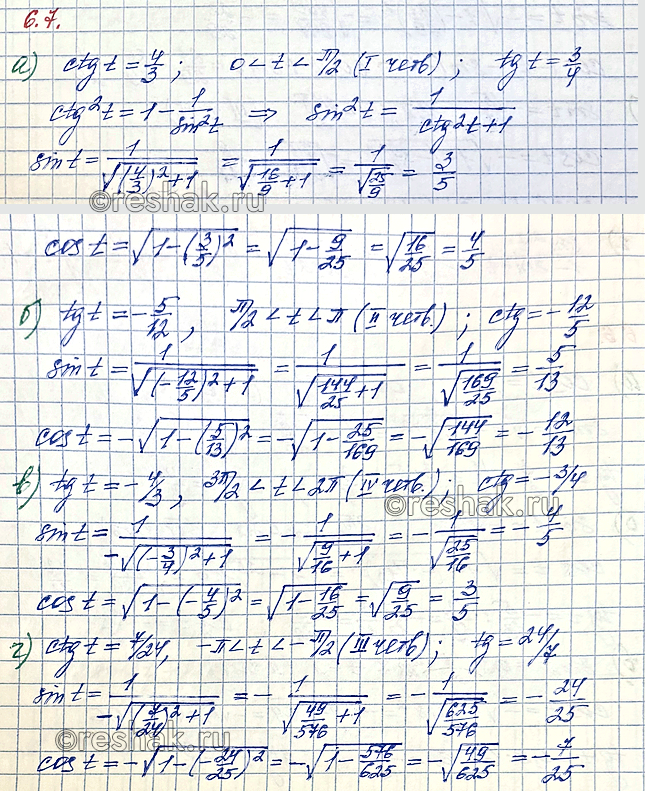 6.7.
а) ctg t = 4/3 ; 0 < t < π/2 (I четв) ; tg t = 3/4
ctg²t = 1 - 1/sin²t ⇒ sin²t = 1/(ctg²t + 1)
sin t = 1/√((4/3)² + 1) = 1/√(16/9 + 1) = 1/√(25/9) = 3/5
©reshak.ru
cos t = √(1 - (3/5)²) = √(1 - 9/25) = √(16/25) = 4/5
б) tg t = - 5/12 , π/2 < t < π (II четв.) ; ctg = - 12/5
sin t = 1/√((-12/5)² + 1) = 1/√(144/25 + 1) = 1/√(169/25) = 5/13
cos t = -√(1 - (5/13)²) = -√(1 - 25/169) = -√(144/169) = - 12/13
в) tg t = - 4/3 , 3π/2 < t < 2π (IV четв.) ; ctg = - 3/4
©reshak.ru
sin t = 1/-√((-3/4)² + 1) = - 1/√(9/16 + 1) = - 1/√(25/16) = - 4/5
cos t = √(1 - (-4/5)²) = √(1 - 16/25) = √(9/25) = 3/5
г) ctg t = 7/24, -π < t < -π/2 (III четв) ; tg = 24/7
sin t = 1/-√((7/24)² + 1) = - 1/√(49/576 + 1) = - 1/√(625/576) = - 24/25
©reshak.ru
cos t = -√(1 - (-24/25)²) = -√(1 - 576/625) = -√(49/625) = - 7/25